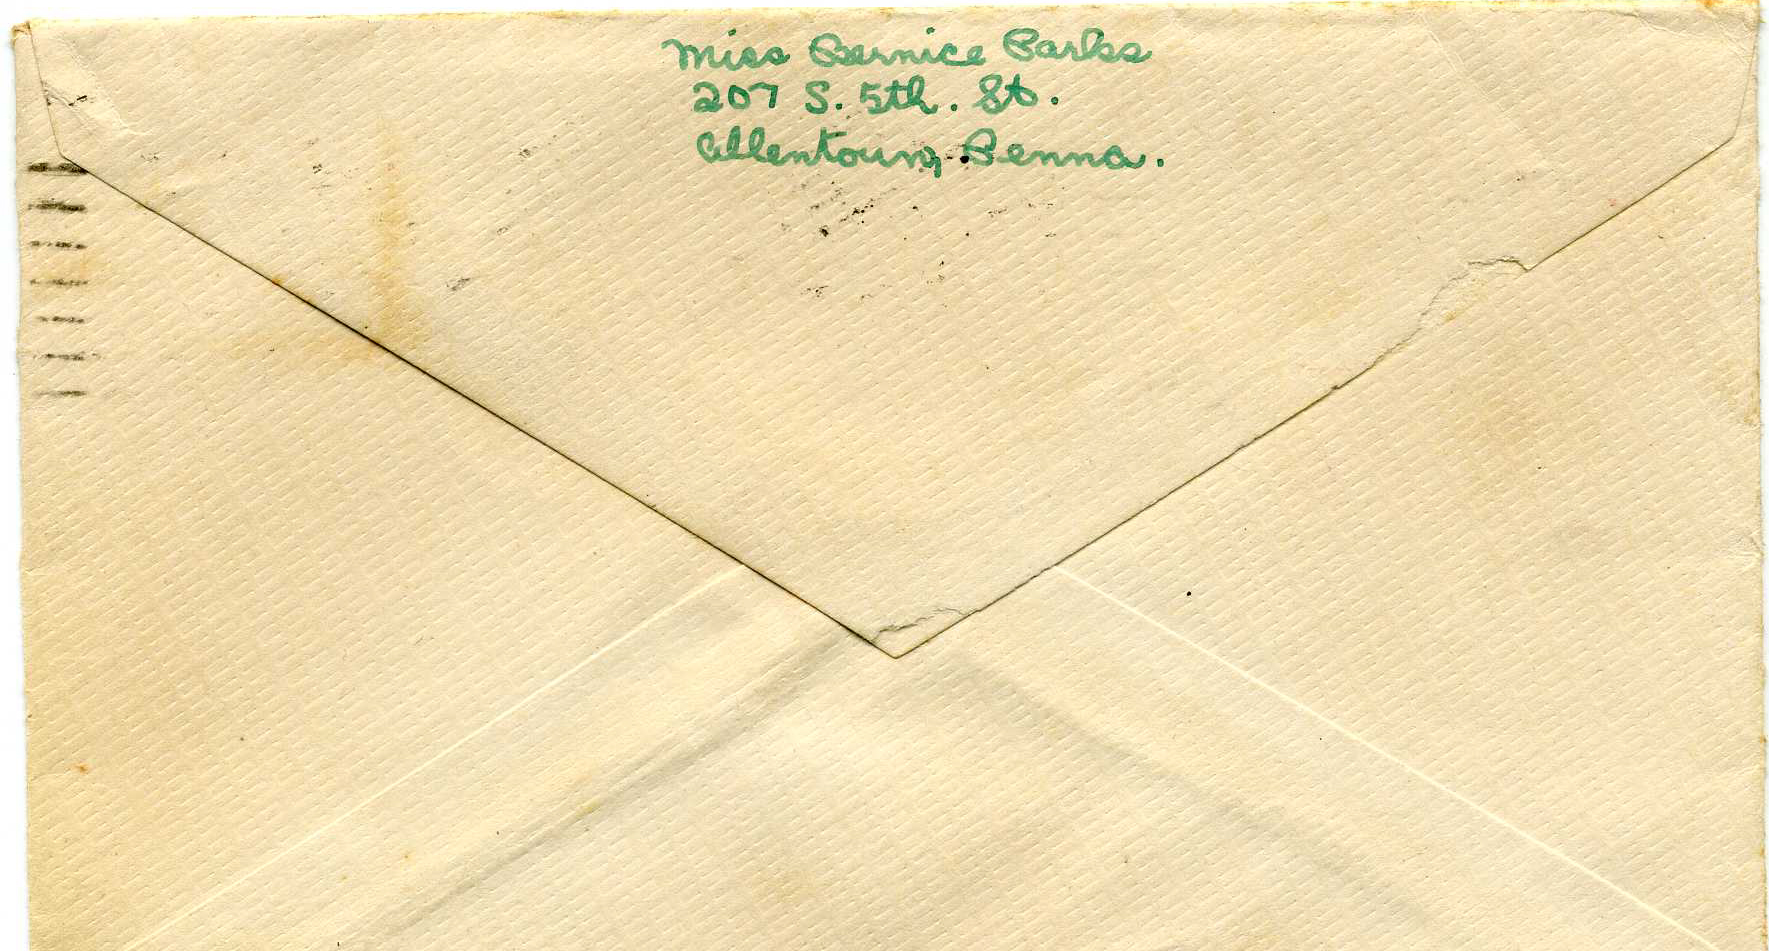 Miss Bernice Parks
207 S. 5th. St.
Allentown, Penna.